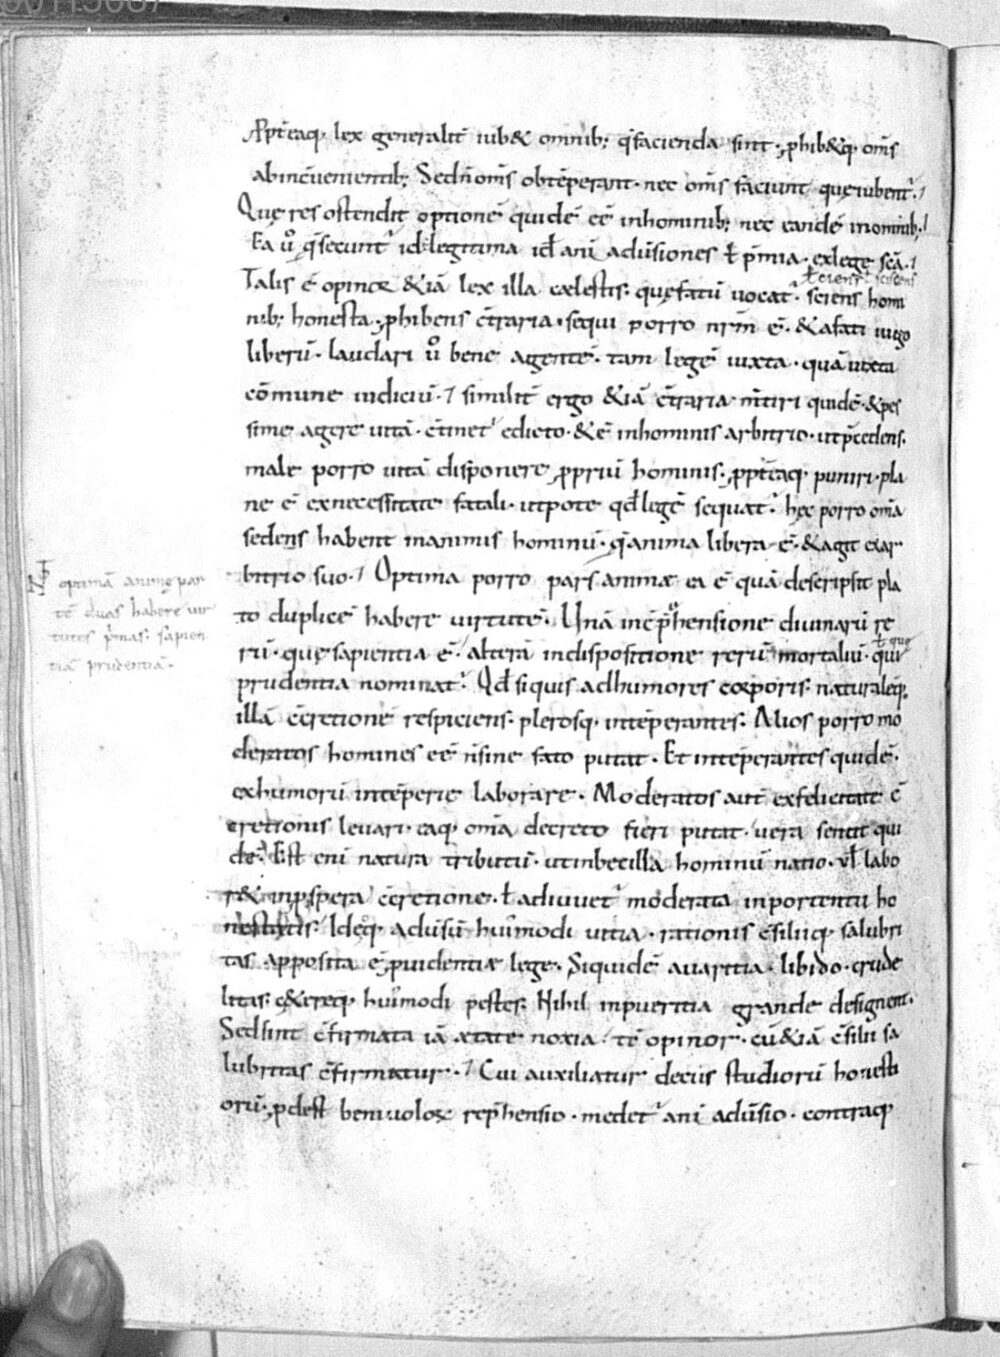 ꝓpt̄eaq. lex generalit̄ iub& omnib; q̄ facienda sint. ꝓhib&q. om̄s
ab inc̄uenientib; Sed n̄ om̄s obtēperant. nec om̄s faciunt quę iubent᷑.
Quę res ostendit optionē quidē eē in hominib; nec eandē in omnib;
Ea ů q̄ secunt᷑ id ÷ legitima id ÷ ani adūsiones ł p̄mia. ex lege sc̄a.
ł ciens ł sciscens
Talis ē opinor &iā lex illa cælestis. quę fatū uocat᷑. sciens homi
nib; honesta ꝓhibens c̄traria. sequi porro nr̄m ē. & a fati iugo
liberū. laudari ů bene agentē. tam legē iuxta. quā iuxta
cōmune iudiciū. similit̄ ergo &iā c̄traria. m̄tiri quidē. & pes
sime agere uitā. c̄tinet᷑ edicto. & ē in hominis arbitrio. ut p̄cedens.
male porro uitā disponere ꝓpriū hominis. ꝓpt̄eaq. puniri. pla
ne ē ex necessitate fatali. utpote qđ legē sequat᷑. hęc porro om̄a
sedens habent in animis hominū. q̄ anima libera ē. & agit ex ar
bitrio suo. Optima porro pars animæ ea ē quā descripsit pla
to duplicē habere uirtutē. Unā in c̄p̄hensione diuinarū re
ł quę
rū. quę sapientia ē. alterā in dispositione rerū mortaliū. qui
prudentia nominat᷑. Qđ si quis ad humores corporis. naturalēq.
illā c̄cretionē respiciens. plerosq. intēperantes. Alios porro mo
deratos homines eē n̄ sine fato putat. Et intēperantes quidē.
ex humorū intēperie laborare. Moderatos aut̄ ex felicitate c̄
cretionis leuari. eaq. om̄a decreto fieri putat. uera sentit qui
dē. Est eni natura tributū. ut imbecilla hominū natio. uł labo
r& inpspera c̄cretione. ł adiuuet᷑ moderata in portentu ho
nestatis. Ideoq. adūsū hui᷒modi uitia. rationis c̄siliiq. salubri
tas apposita ē ꝓuidentiæ lege. Siquidē auaritia. libido. crude
litas. c&eræq. hui᷒modi pestes. Nihil in pueritia grande designent.
Sed sint c̄firmata iā ætate noxia. tē opinor. cū &iā c̄silii sa
lubritas c̄firmatur. Cui auxiliatur decus studiorū honesti
orū. ꝓdest beniuolor rep̄hensio. medet᷑ ani adūsio. contraq.
NT optimā animę par
tē duas habere uir
tutes p̄mas. sapien
tiā prudentiā.